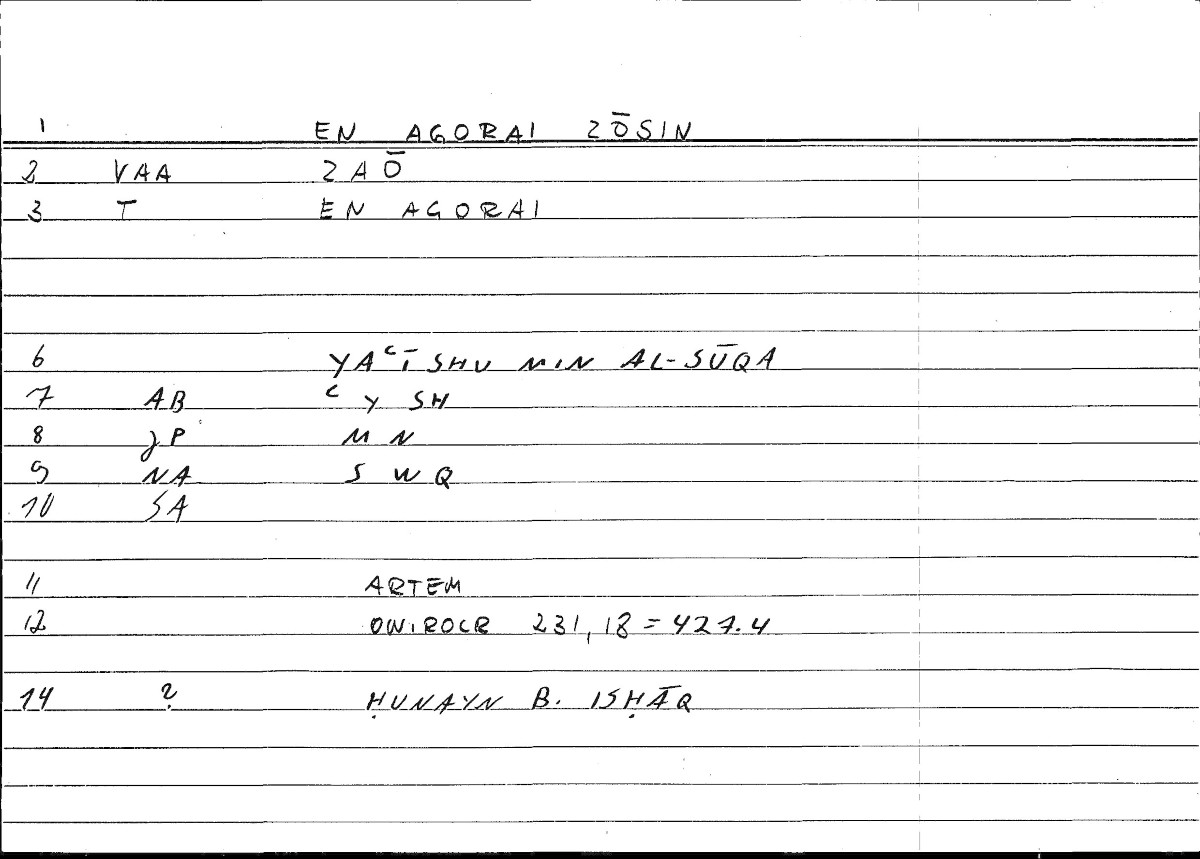 1 EN AGORAI ZŌSIN
2 VAA ZAŌ
3 T EN AGORAI
6 YAʿĪSHU MIN AL-SŪQA
7 AB ʿ Y SH
8 JP M N
9 NA S W Q
10 SA
11 ARTEM
12 ONIROCR 231,18 = 427.4
14 ? ḤUNAYN B. ISḤĀQ